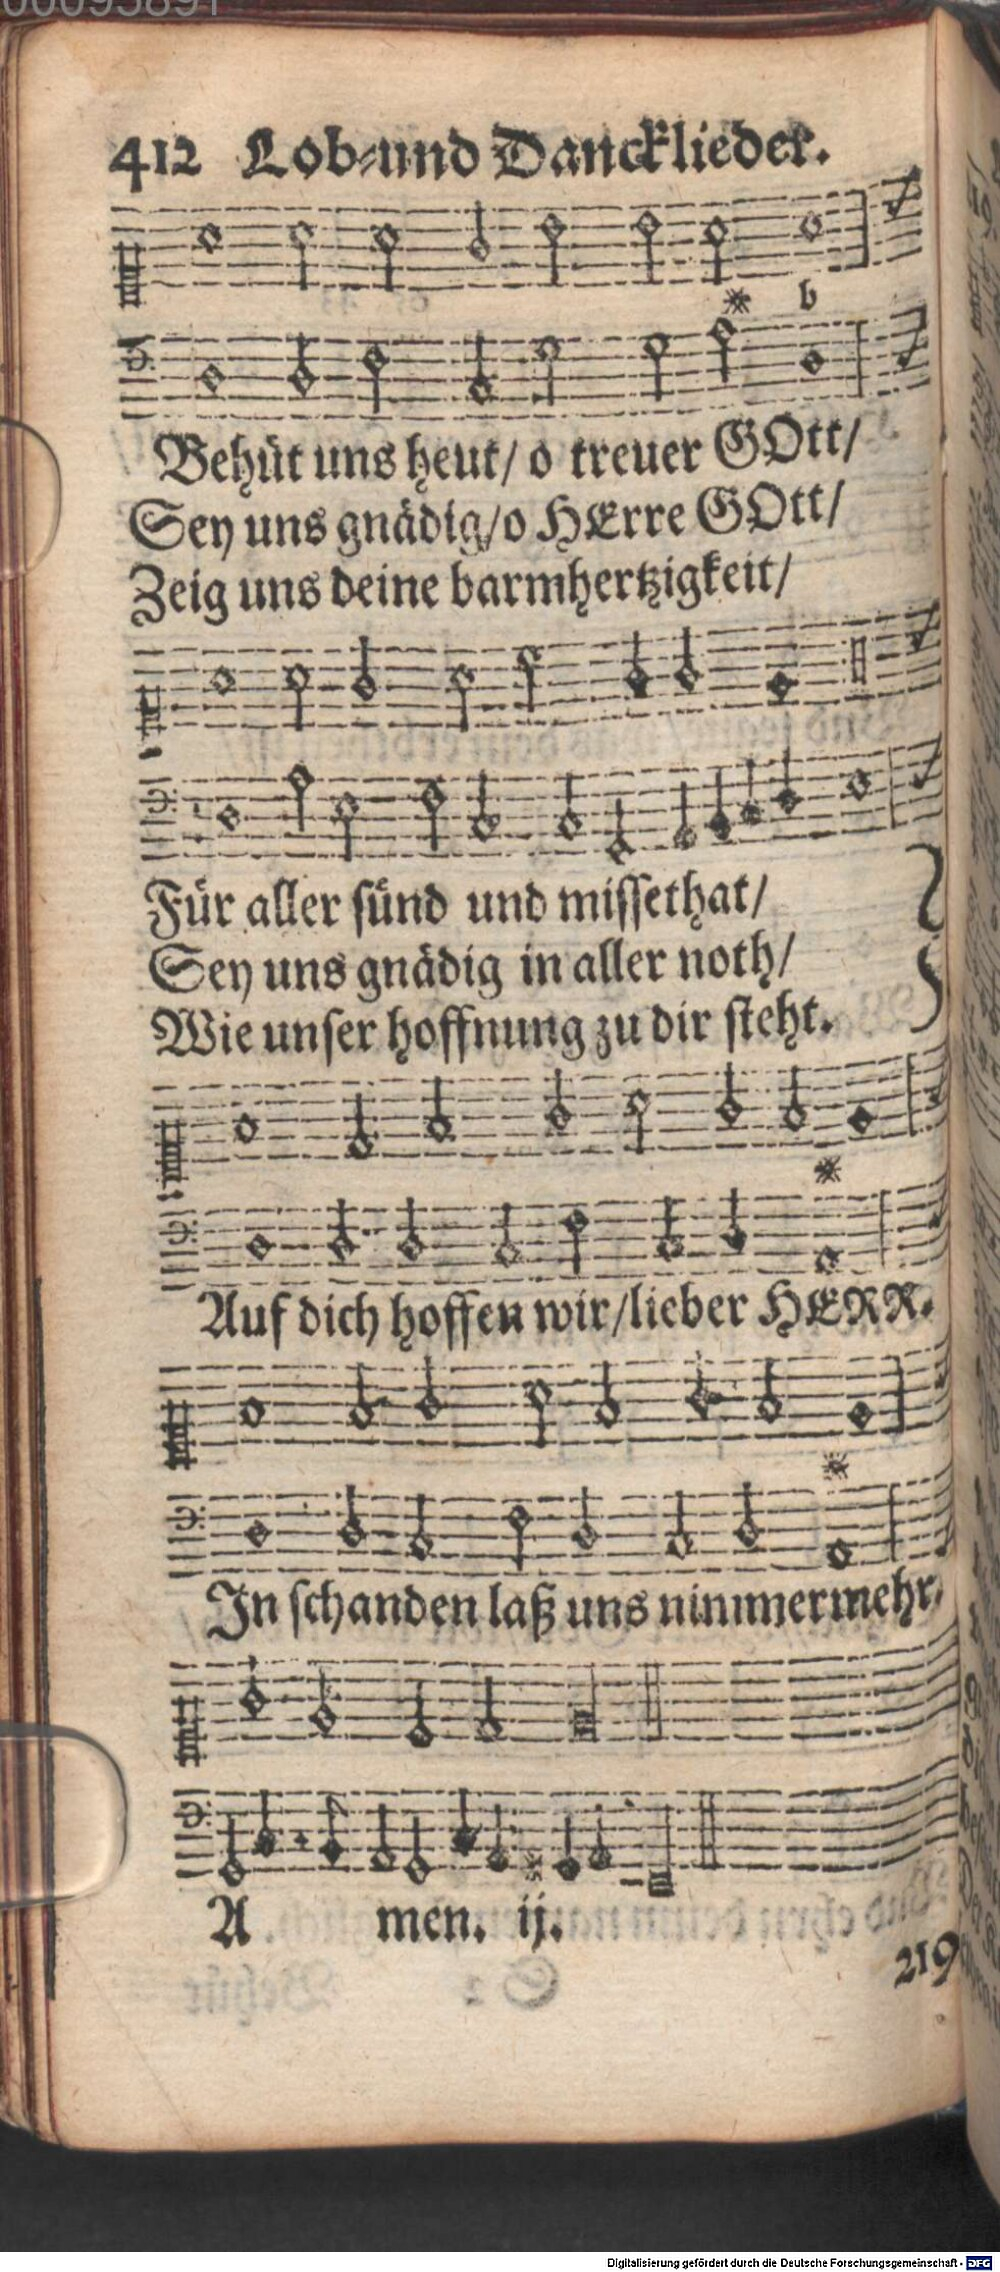 00095891
412 Lob-und Dancklieder.
Behüt uns heut/ o treuer GOtt/
Sey uns gnädig/o HErre GOtt/
Zeig uns deine barmhertzigkeit/
Für aller sünd und missethat/
Sey uns gnädig in aller noth/
Wie unser hoffnung zu dir steht.
Auf dich hoffen wir/lieber HERR.
In schanden laß uns nimmermehr.
A men. ij.
219
Digitalisierung gefördert durch die Deutsche Forschungsgemeinschaft - DFG